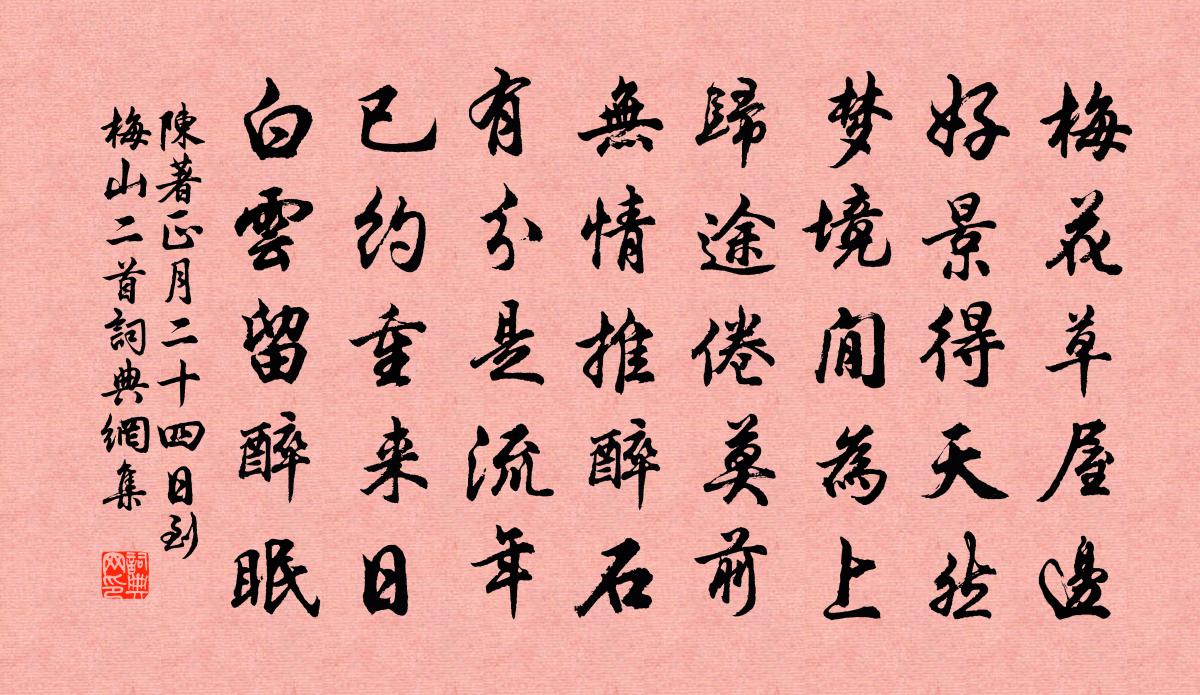 梅花草屋邊
好景得天然
梦境閒為上
歸途倦莫前
無情推醉石
有分是流年
已約重来日
白雲留醉眠
陳著正月二十四日到
梅山二首詞典網集
詞典
网印